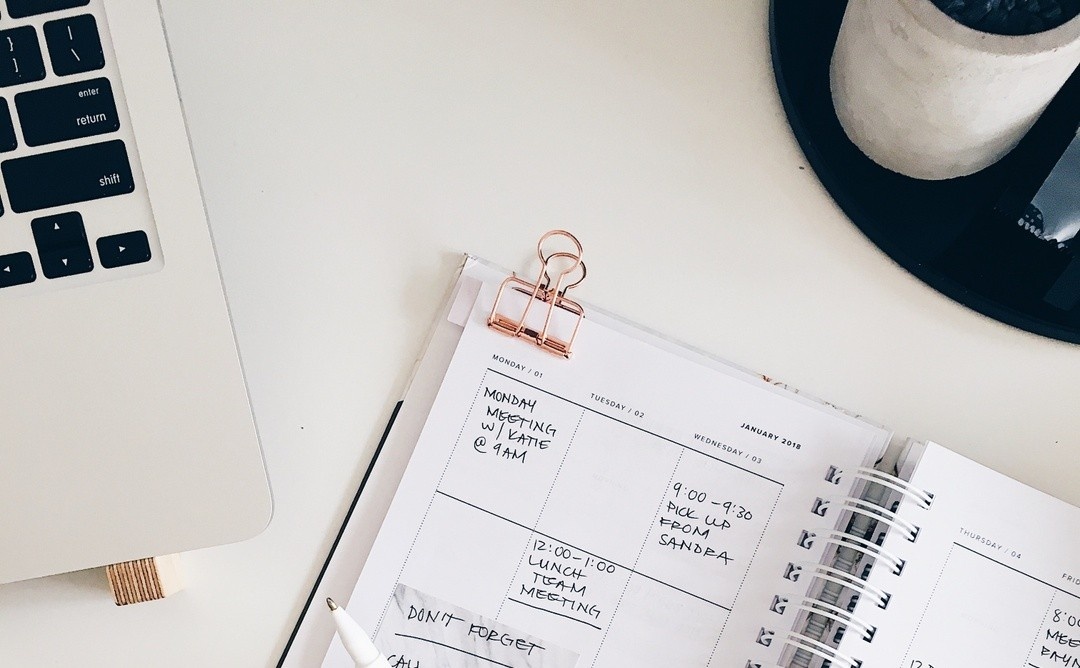 }
]
|
\
enter
return
shift
MONDAY / 01
TUESDAY / 02
JANUARY 2018
WEDNESDAY / 03
MONDAY
MEETING
W/ KATIE
@ 9AM
9:00 - 9:30
PICK UP
FROM
SANDRA
12:00-1:00
LUNCH
TEAM
MEETING
DON'T FORGET
THURSDAY / 04